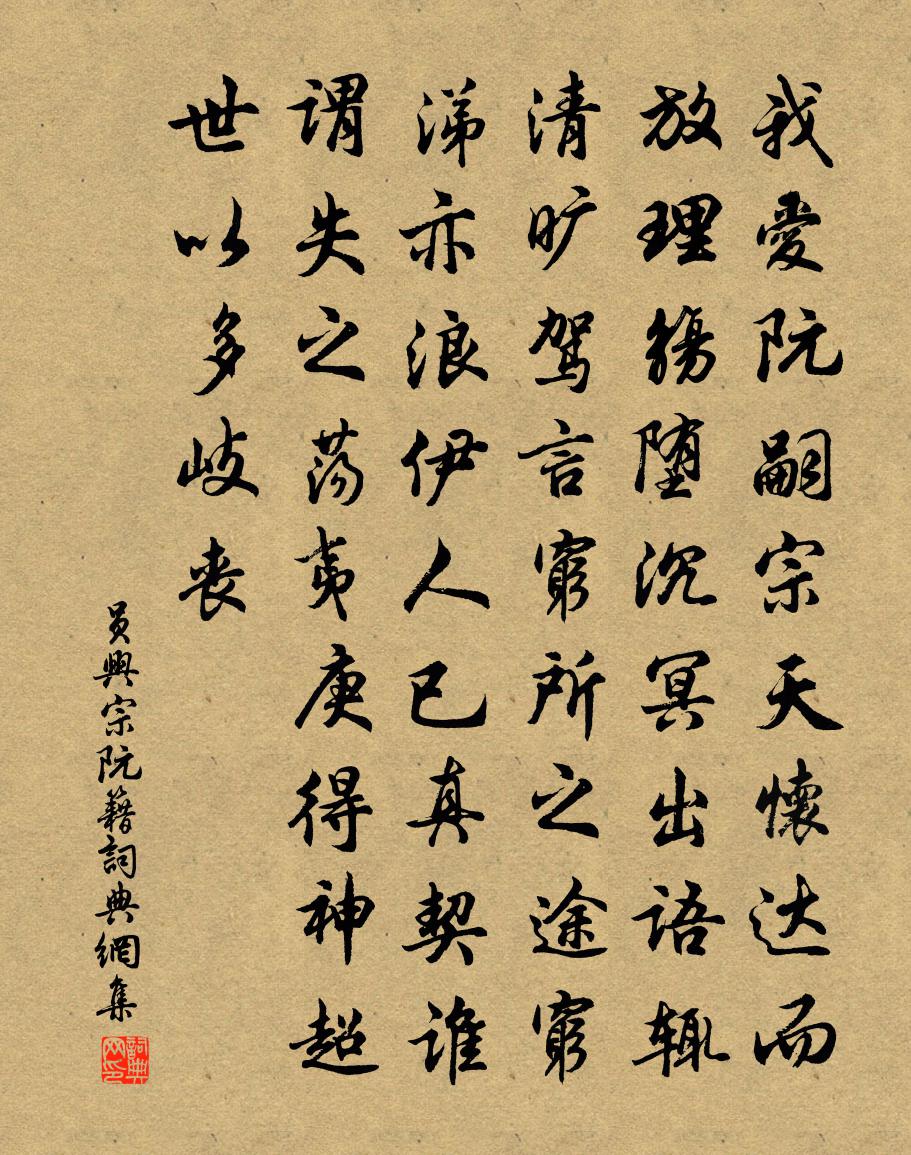 我愛阮嗣宗天懷达而
放理觞堕沉冥出语辄
清旷驾言窮所之途窮
涕亦浪伊人已真契谁
谓失之荡夷庚得神超
世以多歧丧
员興宗阮籍詞典網集
詞典
网印